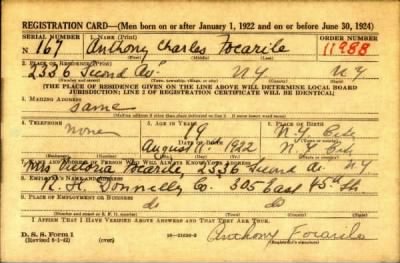 REGISTRATION CARD—(Men born on or after January 1, 1922 and on or before June 30, 1924)
SERIAL NUMBER 1. NAME (Print) ORDER NUMBER
N 167 Anthony Charles Focarile 11988
(First) (Middle) (Last)
2. PLACE OF RESIDENCE (Print)
2336 Second Av. N.Y. N.Y
(Number and street) (Town, township, village, or city) (County) (State)
[THE PLACE OF RESIDENCE GIVEN ON THE LINE ABOVE WILL DETERMINE LOCAL BOARD
JURISDICTION; LINE 2 OF REGISTRATION CERTIFICATE WILL BE IDENTICAL]
3. MAILING ADDRESS
Same
[Mailing address if other than place indicated on line 2. If same insert word same]
4. TELEPHONE 5. AGE IN YEARS 6. PLACE OF BIRTH
none 19 N.Y. City
DATE OF BIRTH
August 11. 1922 N.Y. City
7. NAME AND ADDRESS OF PERSON WHO WILL ALWAYS KNOW YOUR ADDRESS
Mrs Focarile, 2336 Second Av. NY
8. EMPLOYER'S NAME AND ADDRESS
R. H. Donnelly Co. 305 East 45th St
9. PLACE OF EMPLOYMENT OR BUSINESS
do do
(Number and street or R. F. D. number) (Town) (County) (State)
I AFFIRM THAT I HAVE VERIFIED ABOVE ANSWERS AND THAT THEY ARE TRUE.
D. S. S. Form 1
(Revised 6-1-42)
Anthony Focarile
(Registrant's signature)